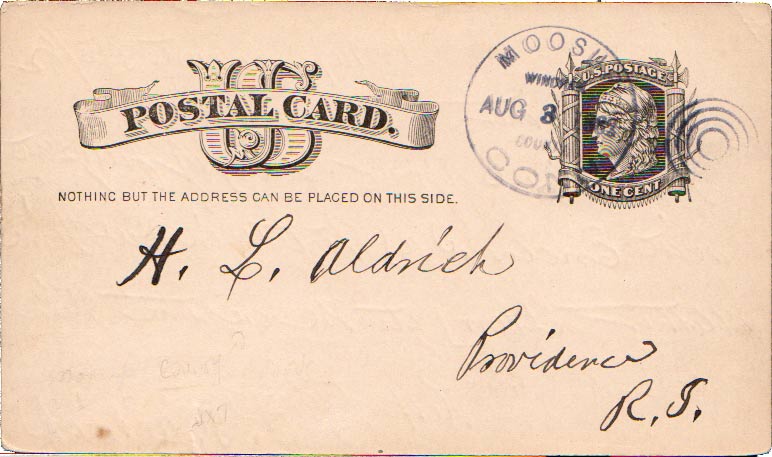 US
POSTAL CARD.
NOTHING BUT THE ADDRESS CAN BE PLACED ON THIS SIDE.
MOOSUP
AUG 3
CONN
U.S. POSTAGE
ONE CENT
H. L. Aldrich
Providence
R. I.
County